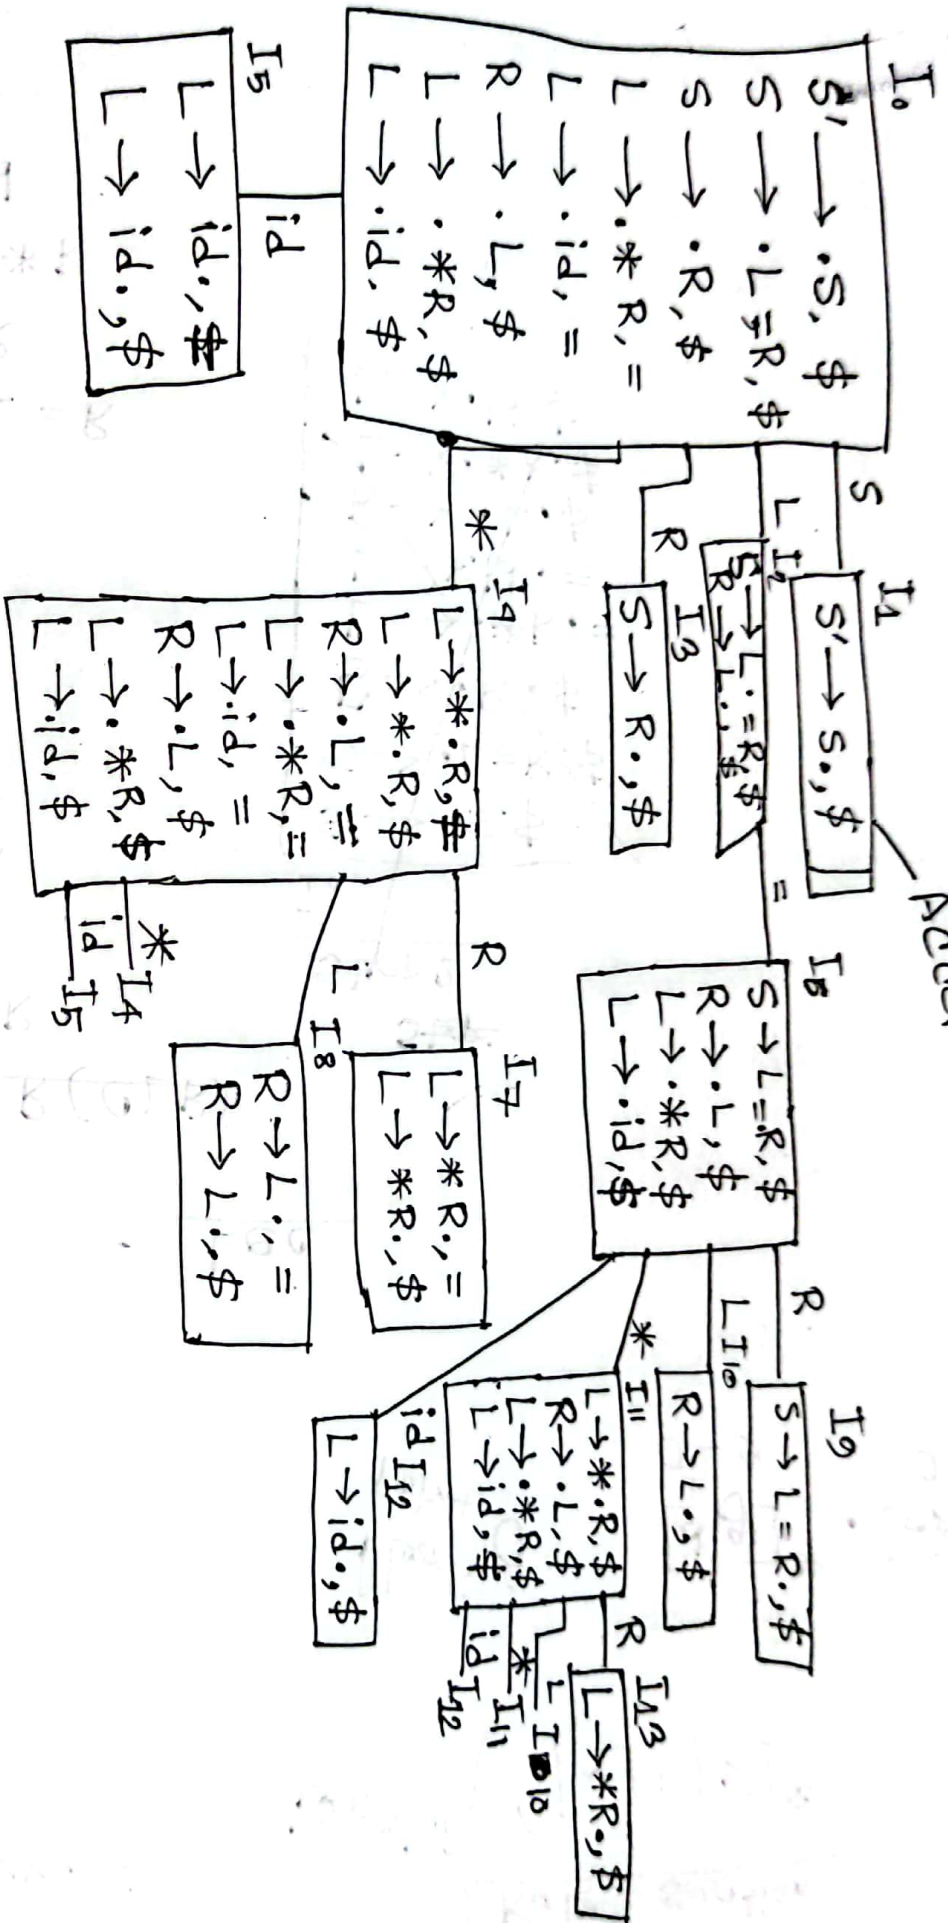 I₀
S' → .S, $
S → .L=R, $
S → .R, $
L → .*R, =
L → .id, =
R → .L, $
L → .*R, $
L → .id. $
id
I5
L → id., $
L → id., $
S
I1
S' → S., $
L
I2
S → L.=R,$
R → L., $
=
R
I3
S → R., $
*
L → *.R, =
L → *.R, $
R → .L, =
L → .*R, =
L → .id, =
R → .L, $
L → .*R, $
L → .id, $
* I4
id I5
R
I7
L → *R., =
L → *R., $
L
I8
R → L., =
R → L., $
S → L=.R, $
R → .L, $
L → .*R, $
L → .id, $
R
I9
S → L=R., $
L I10
R → L., $
* I11
L → *.R, $
R → .L, $
L → .*R, $
L → id, $
id I12
L → id., $
R
I13
L → *R., $
L I10
* I11
id I12